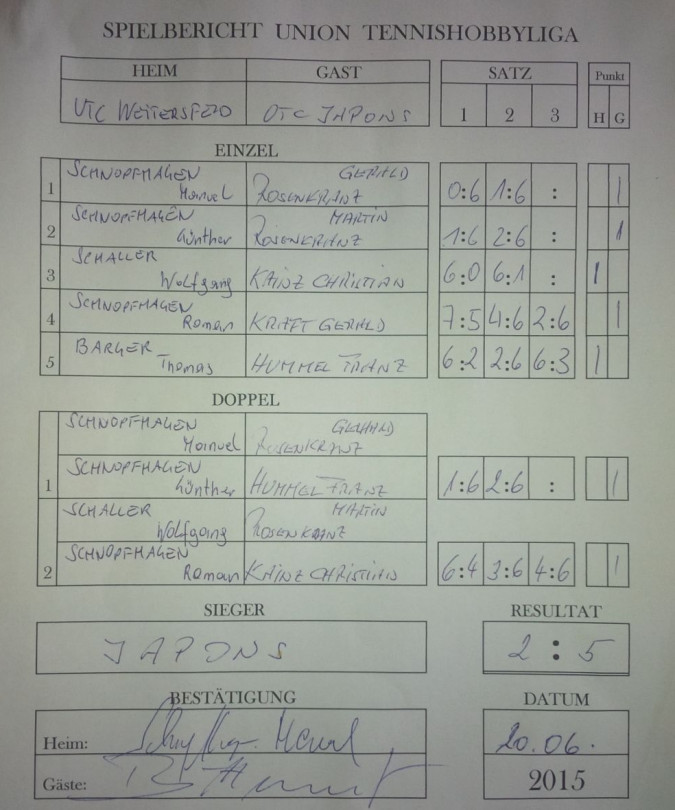 SPIELBERICHT UNION TENNISHOBBYLIGA
HEIM GAST SATZ Punkt
UTC WEITERSFELD UTC JAPONS 1 2 3 H G
EINZEL
SCHNOPFHAGEN GERALD
1 Manuel ROSENKRANZ 0:6 1:6 : 1
SCHNOPFHAGEN MARTIN
2 Günther ROSENKRANZ 1:6 2:6 : 1
SCHALLER
3 Wolfgang KAINZ CHRISTIAN 6:0 6:1 : 1
SCHNOPFHAGEN
4 Roman KRAFT GERALD 7:5 4:6 2:6 1
BARGER
5 Thomas HUMMEL FRANZ 6:2 2:6 6:3 1
DOPPEL
SCHNOPFHAGEN GERALD
Manuel ROSENKRANZ
SCHNOPFHAGEN
1 Günther HUMMEL FRANZ 1:6 2:6 : 1
SCHALLER MARTIN
Wolfgang ROSENKRANZ
SCHNOPFHAGEN
2 Roman KAINZ CHRISTIAN 6:4 3:6 4:6 1
SIEGER RESULTAT
JAPONS 2:5
BESTÄTIGUNG DATUM
Heim: 20.06.
Gäste: 2015